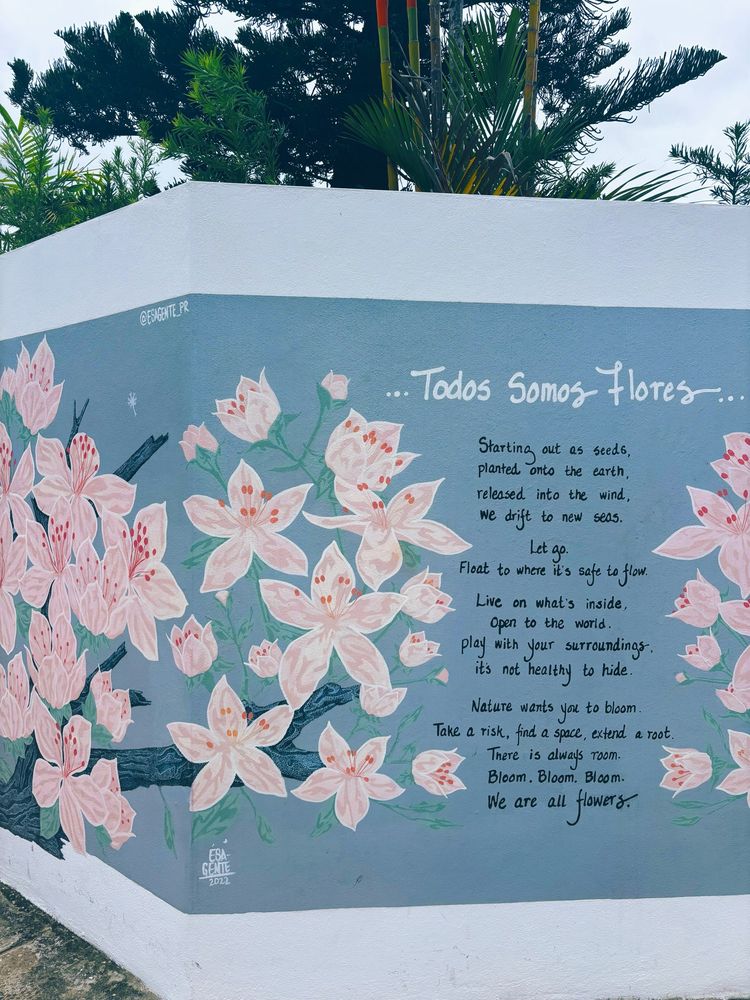 @ESAGENTE_PR
...Todos Somos Flores...
Starting out as seeds,
planted onto the earth,
released into the wind,
we drift to new seas.
Let go.
Float to where it's safe to flow.
Live on what's inside,
Open to the world.
play with your surroundings,
it's not healthy to hide.
Nature wants you to bloom.
Take a risk, find a space, extend a root.
There is always room.
Bloom. Bloom. Bloom.
We are all flowers.
ÉSA-
GENTE
2022